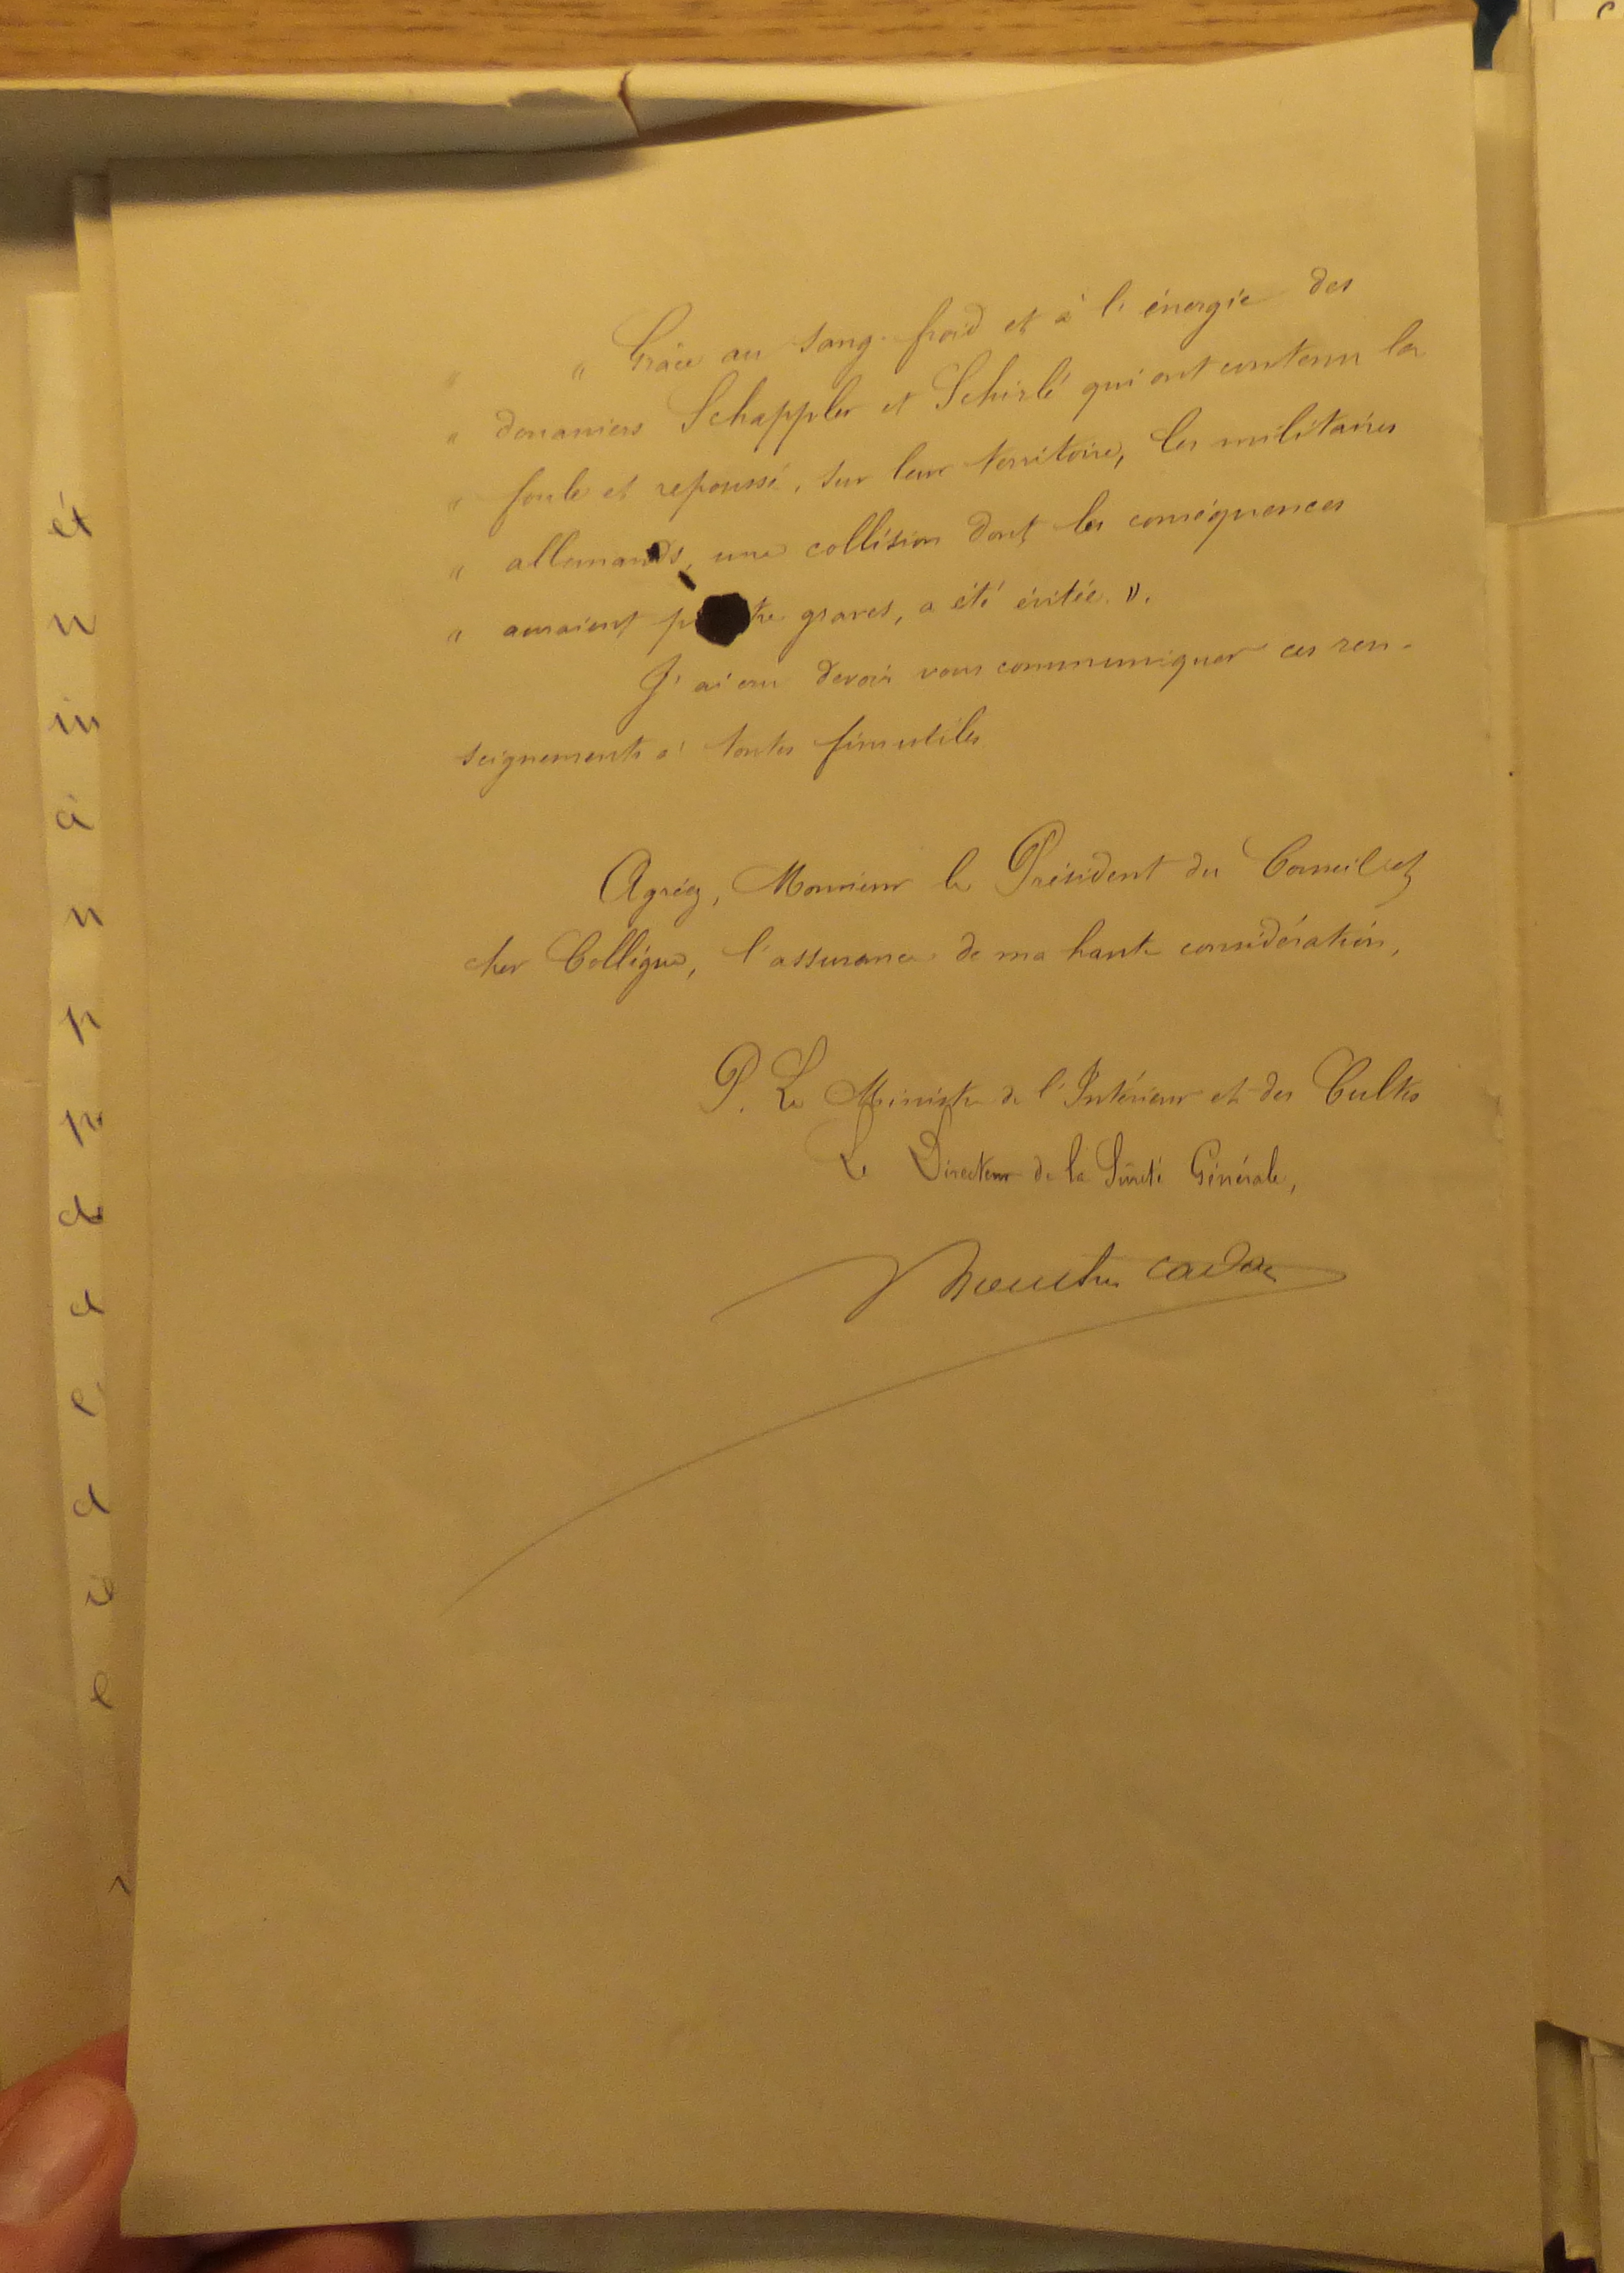 " " Grâce au sang-froid et à l'énergie des
" douaniers Schappler et Schirlé qui ont contenu la
" foule et repoussé, sur leur territoire, les militaires
" allemands, une collision dont les conséquences
" auraient p tre graves, a été évitée. ».
J'ai cru devoir vous communiquer ces ren-
seignements à toutes fins utiles
Agréez, Monsieur le Président du Conseil et
cher Collègue, l'assurance de ma haute considération,
P. Le Ministre de l'Intérieur et des Cultes
Le Directeur de la Sûreté Générale,
ét
n
in
à
n
p
p
d
d
e
d
e